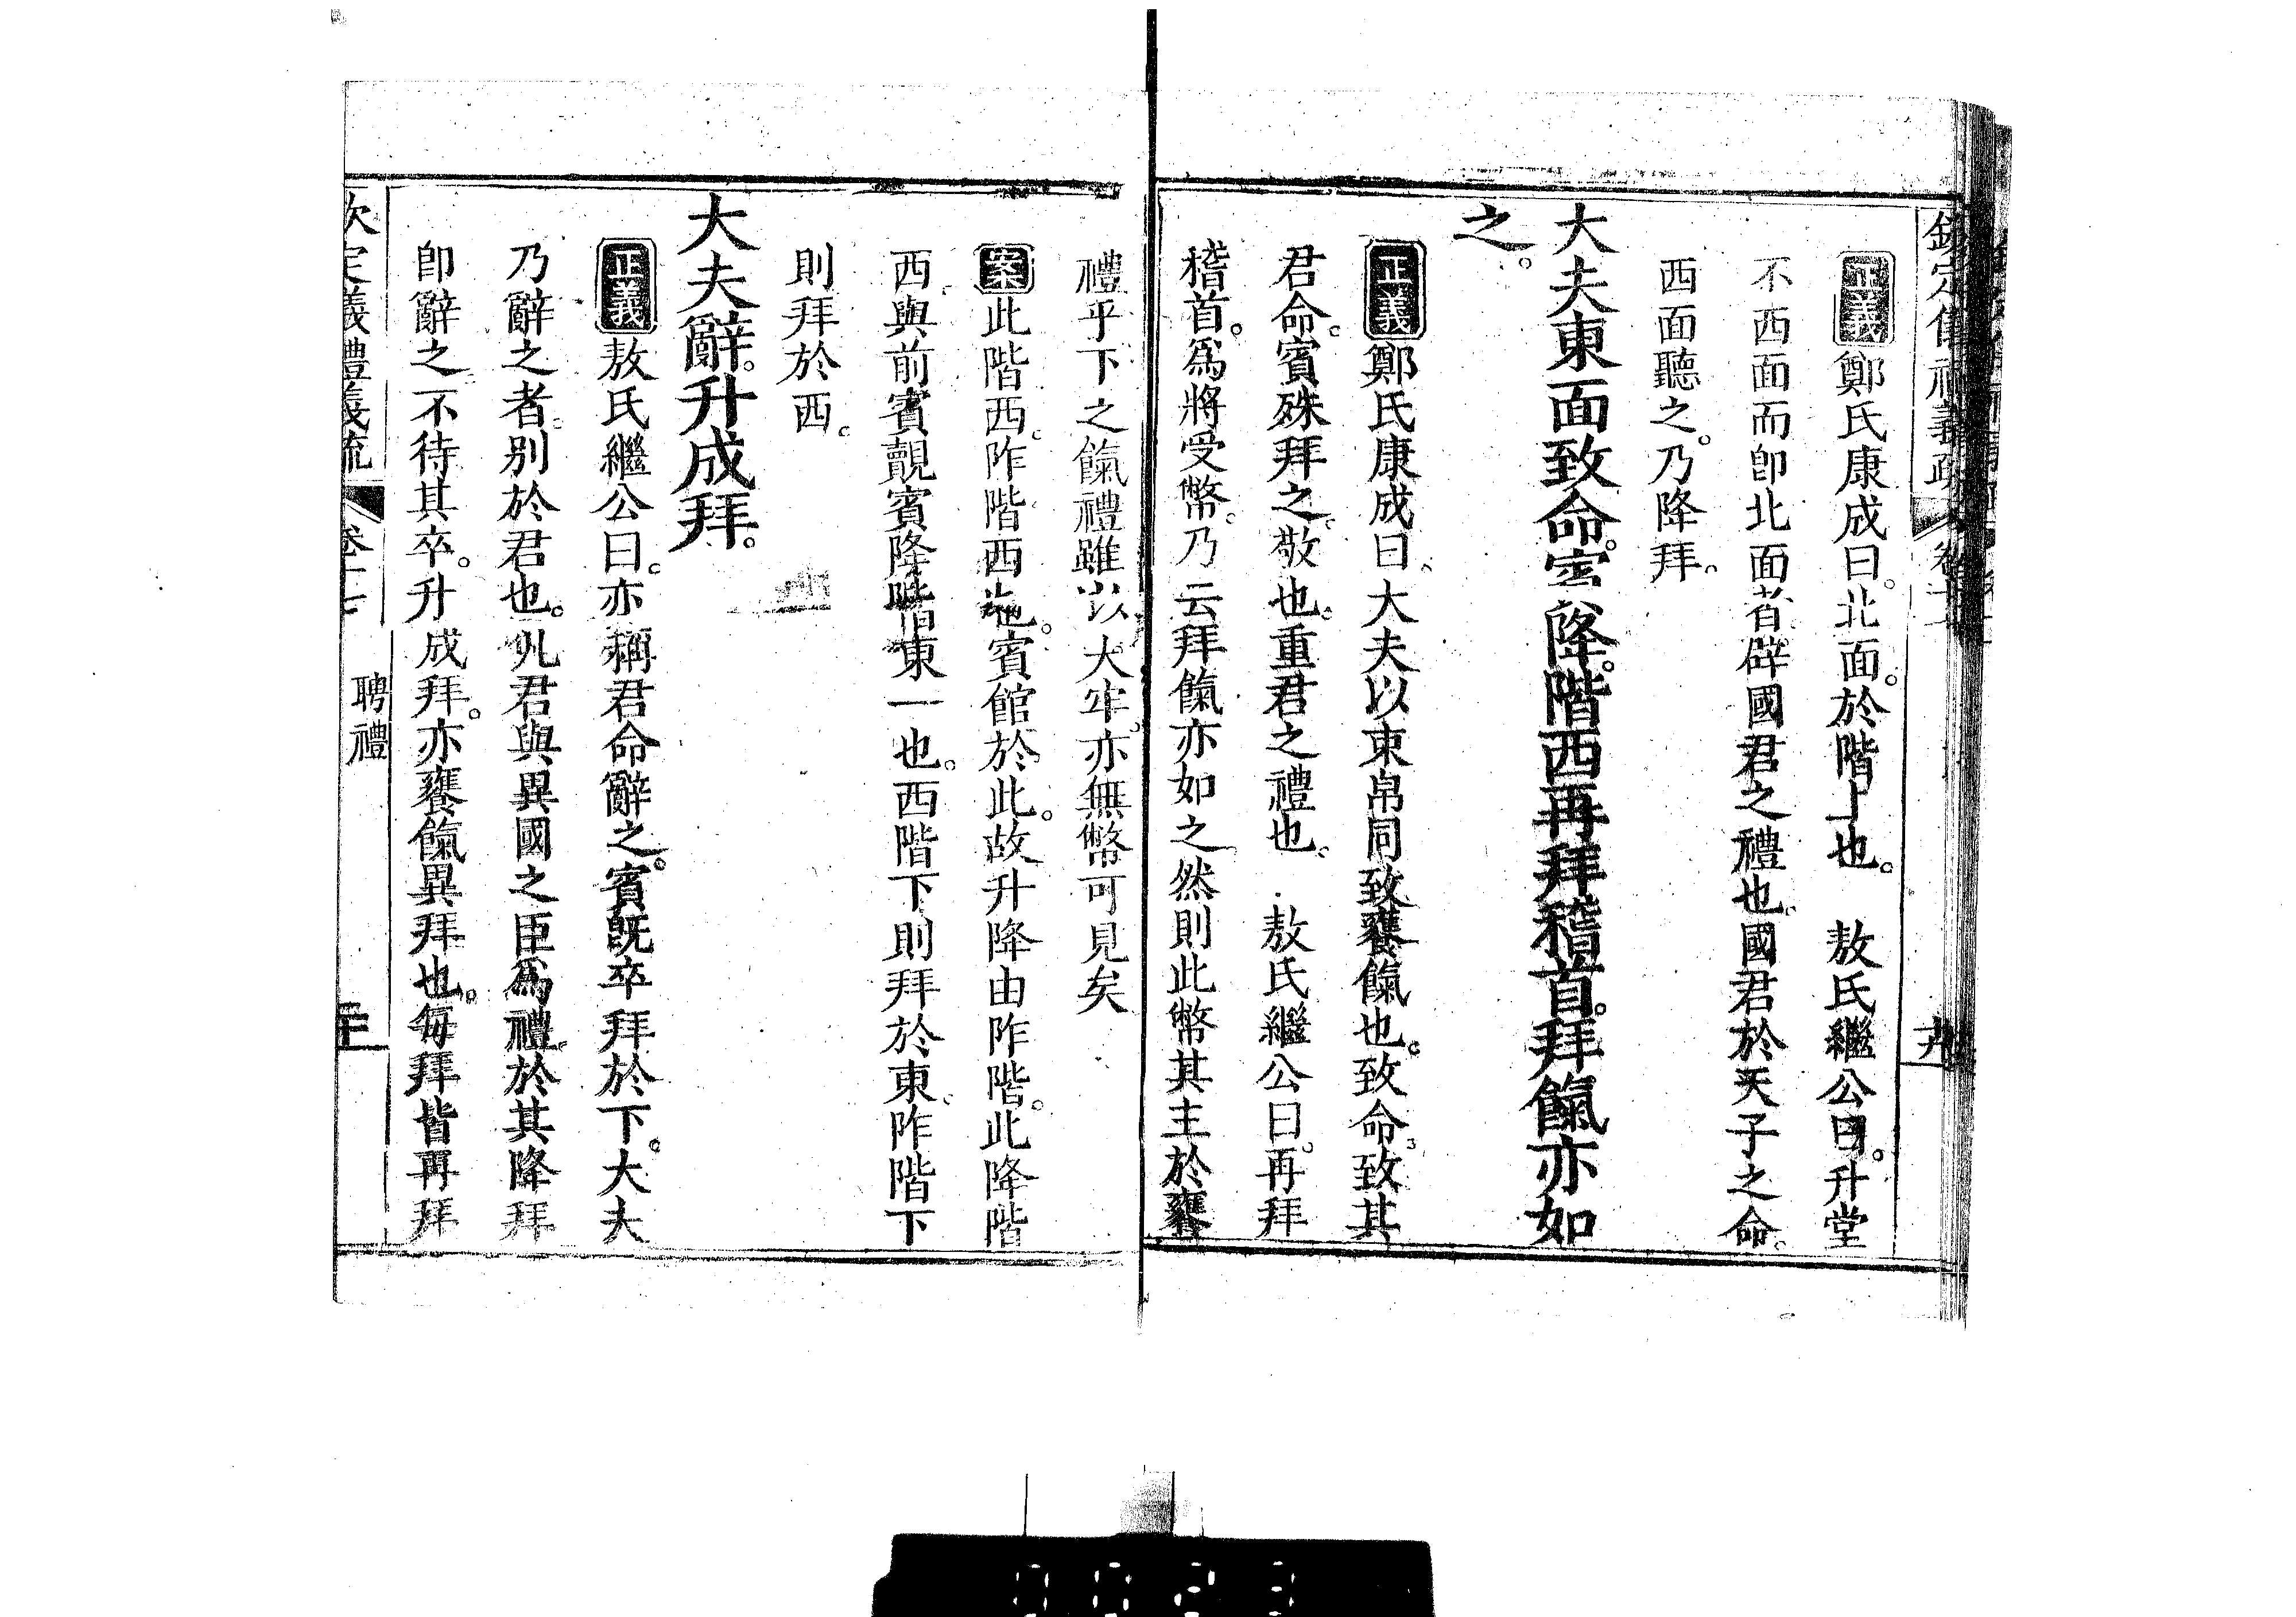 欽定儀禮義疏 卷十七
正義鄭氏康成曰。北面。於階上也。 敖氏繼公曰。升堂
不西面而卽北面者。辟國君之禮也。國君於天子之命。
西面聽之。乃降拜。
大夫東面致命。賓降。階西再拜稽首。拜餼亦如
之。
正義鄭氏康成曰。大夫以束帛同致饔餼也。致命。致其
君命。賓殊拜之。敬也。重君之禮也。 敖氏繼公曰。再拜
稽首。爲將受幣。乃云拜餼亦如之。然則此幣其主於饔
禮乎。下之餼禮雖以大牢。亦無幣可見矣
案此階西。阼階西也。賓館於此。故升降由阼階。此降階
西。與前賓覿賓降階東一也。西階下則拜於東。阼階下
則拜於西。
大夫辭。升成拜。
正義敖氏繼公曰。亦稱君命辭之。賓旣卒拜於下。大夫
乃辭之者。别於君也。凡君與異國之臣爲禮。於其降拜
卽辭之。不待其卒。升成拜。亦饔餼異拜也。每拜皆再拜
欽定儀禮義疏 卷十七 聘禮